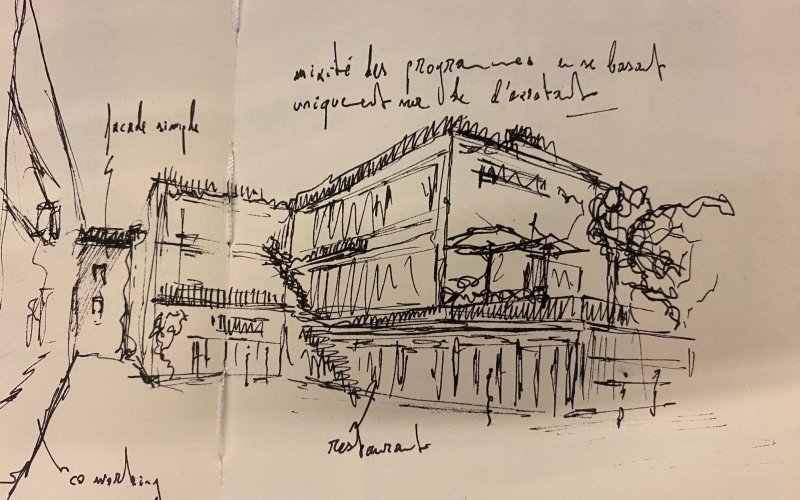 mixité des programmes en se basant
uniquement sur de l'existant
façade simple
restaurants
co working